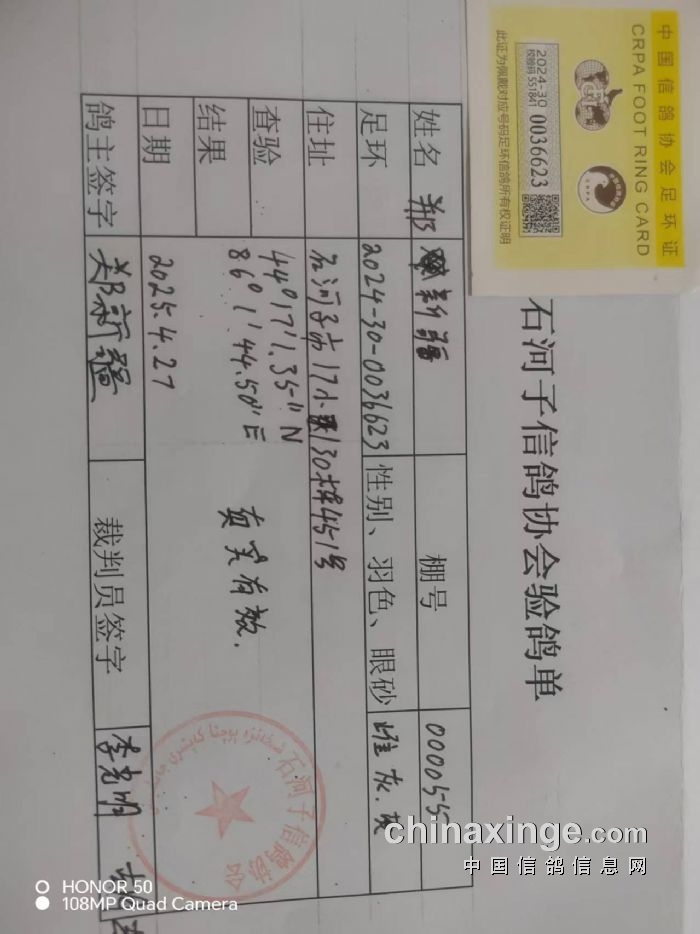 中国信鸽协会足环证
CRPA FOOT RING CARD
2024-30 0036623
校验码 551841
此证为佩戴对应号码足环信鸽所有权证明
石河子信鸽协会验鸽单
姓名 郑新疆 棚号 000055
足环 2024-30-0036623 性别、羽色、眼砂 雄 灰.
住址 石河子市17小区130栋451号
查验 44°17'1.35"N
结果 86°1'44.50"E 真实有效.
日期 2025.4.27
鸽主签字 郑新疆 裁判员签字 李光明
石河子信鸽协会
chinaxinge.com
中国信鸽信息网
HONOR 50
108MP Quad Camera